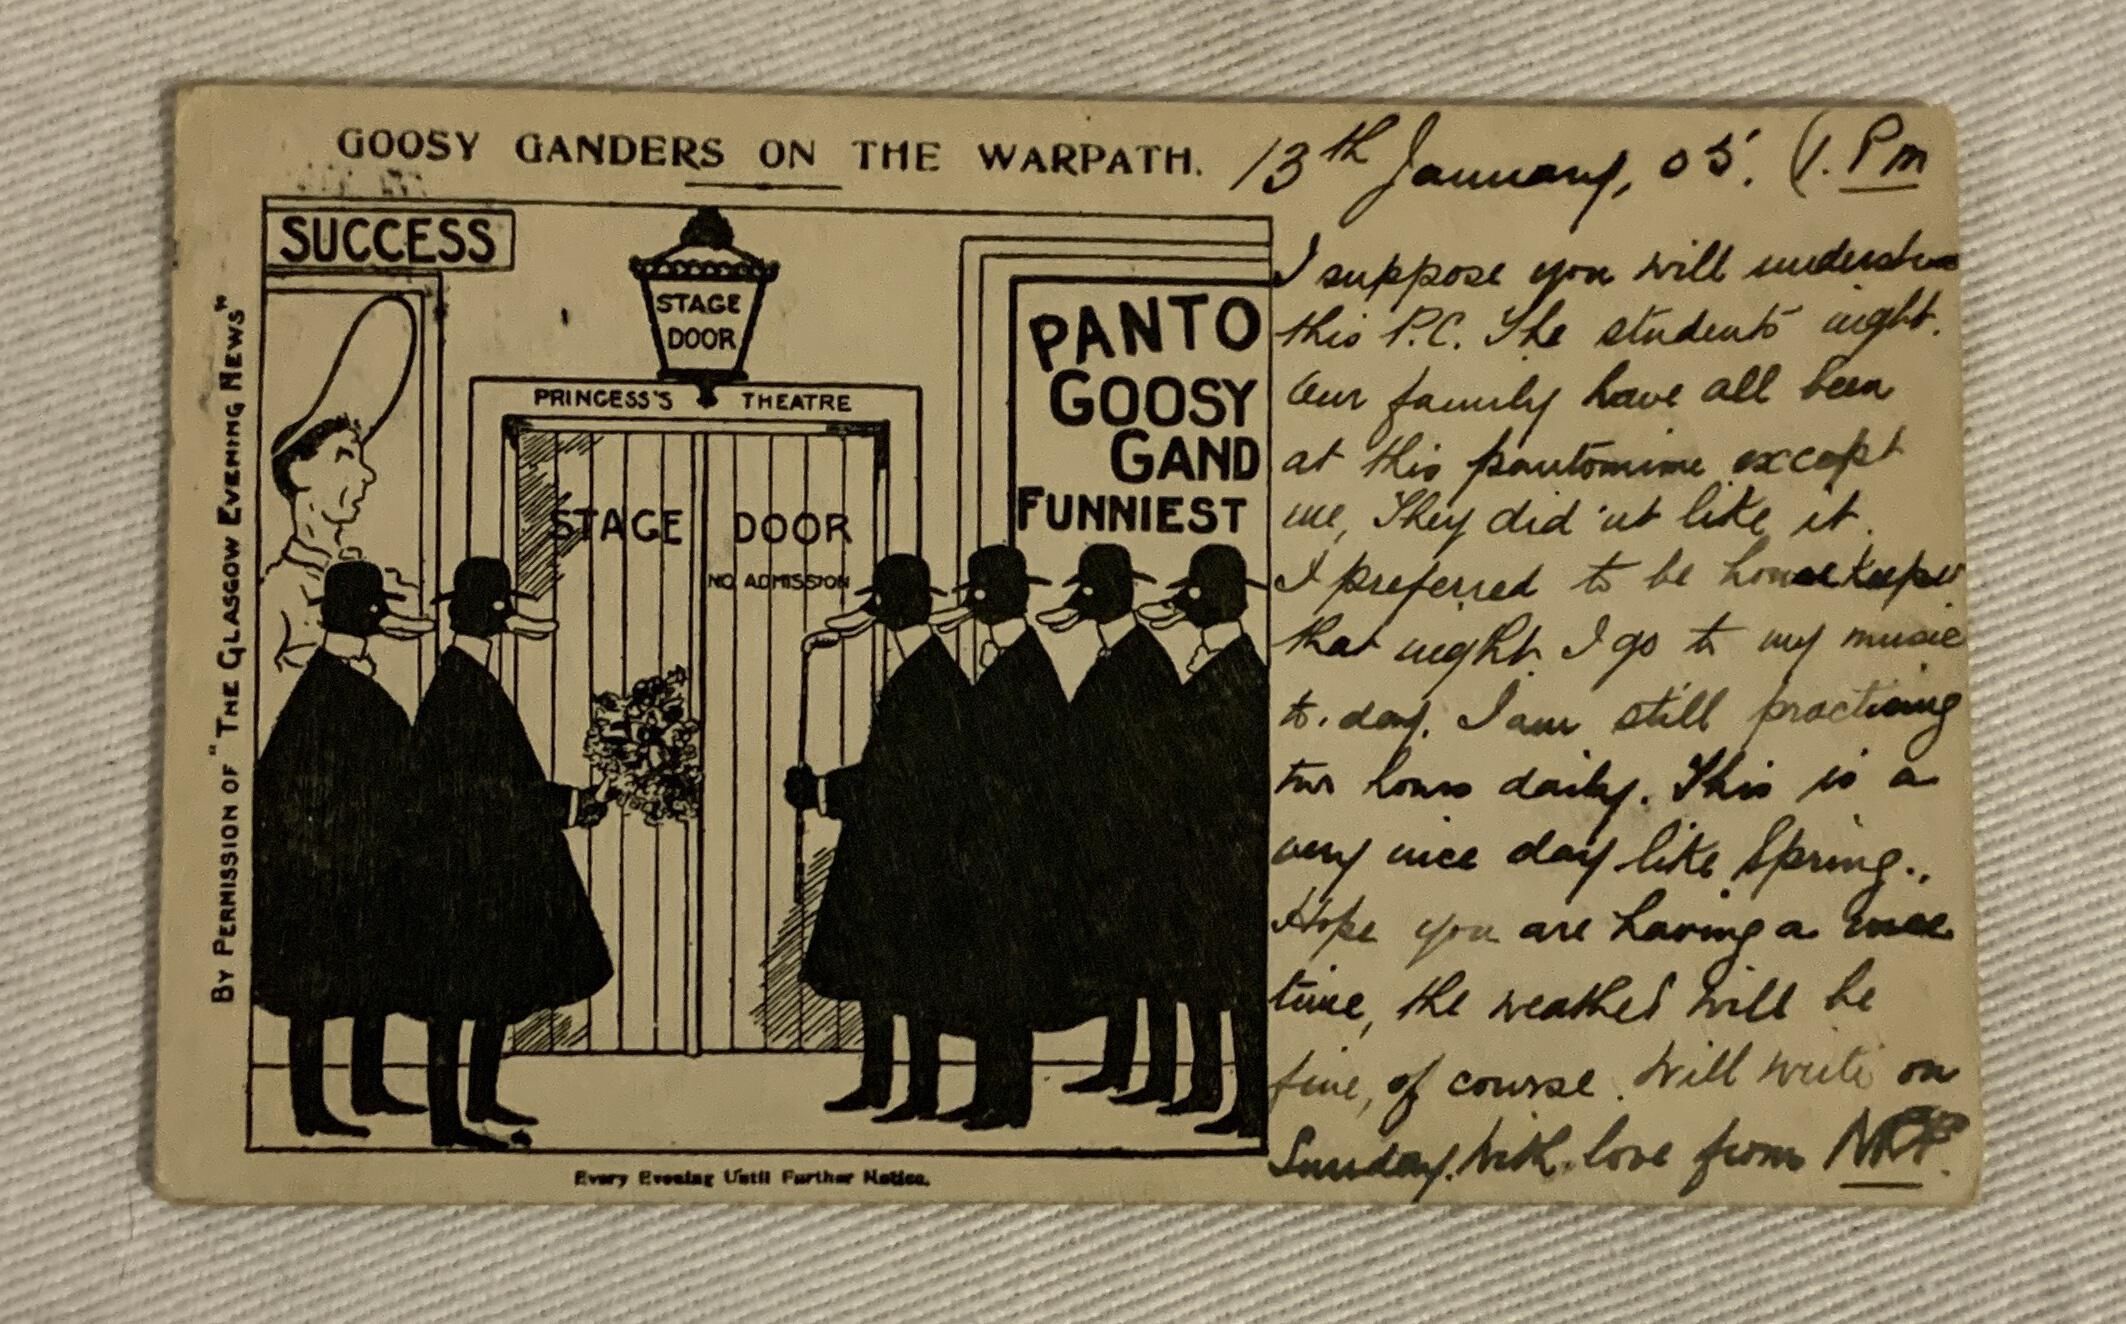 GOOSY GANDERS ON THE WARPATH.
BY PERMISSION OF "THE GLASGOW EVENING NEWS"
SUCCESS
STAGE
DOOR
PRINCESS'S THEATRE
STAGE DOOR
NO ADMISSION
PANTO
GOOSY
GAND
FUNNIEST
Every Evening Until Further Notice.
13th January, 05. (1. Pm
I suppose you will
this P.C. The students night.
Our family have all been
at this pantomime except
me, They did'nt like it.
I preferred to be housekeeper
that night. I go to my music
to.day. I am still practising
two hours daily. This is a
very nice day like Spring..
Hope you are having a nice
time, the weather will be
fine, of course. Will write on
Sunday. With love from